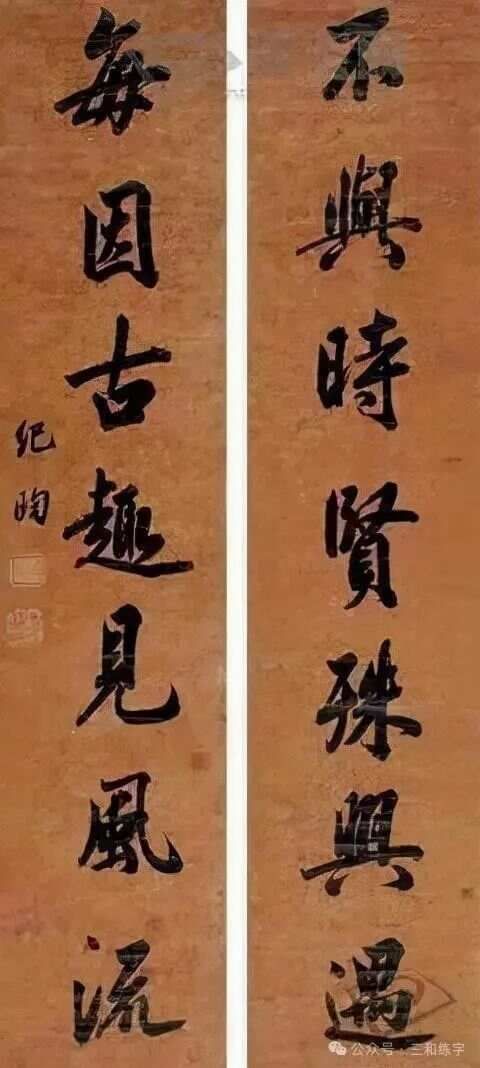 不與時賢殊興遇
每因古趣見風流
紀昀
公众号·三和练字